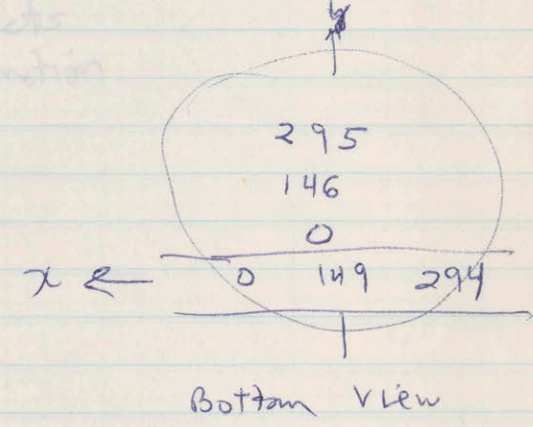 295
146
0
x ← 0 149 294
Bottom View